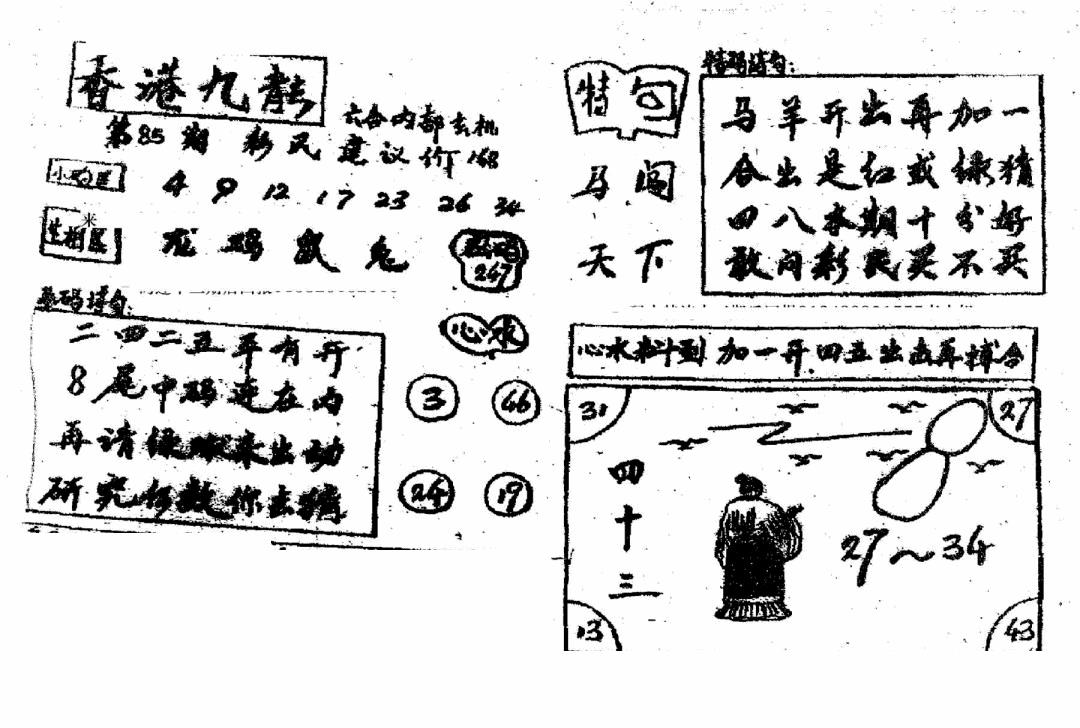 香港九龙
六合内部玄机
第85期 彩民建议价168
4 9 12 17 23 26 34
龙 鸡 鼠 兔
267
二四二五平有开
8尾中码连在内
再请绿波来出动
研究何数你去猜
心水
3 46
24 19
特句
马闯
天下
特码诗句:
马羊开出再加一
合出是红或绿猜
四八本期十分好
敢问彩民买不买
心水料到 加一开四五出击再搏合
31 27
四十三
27~34
13 43